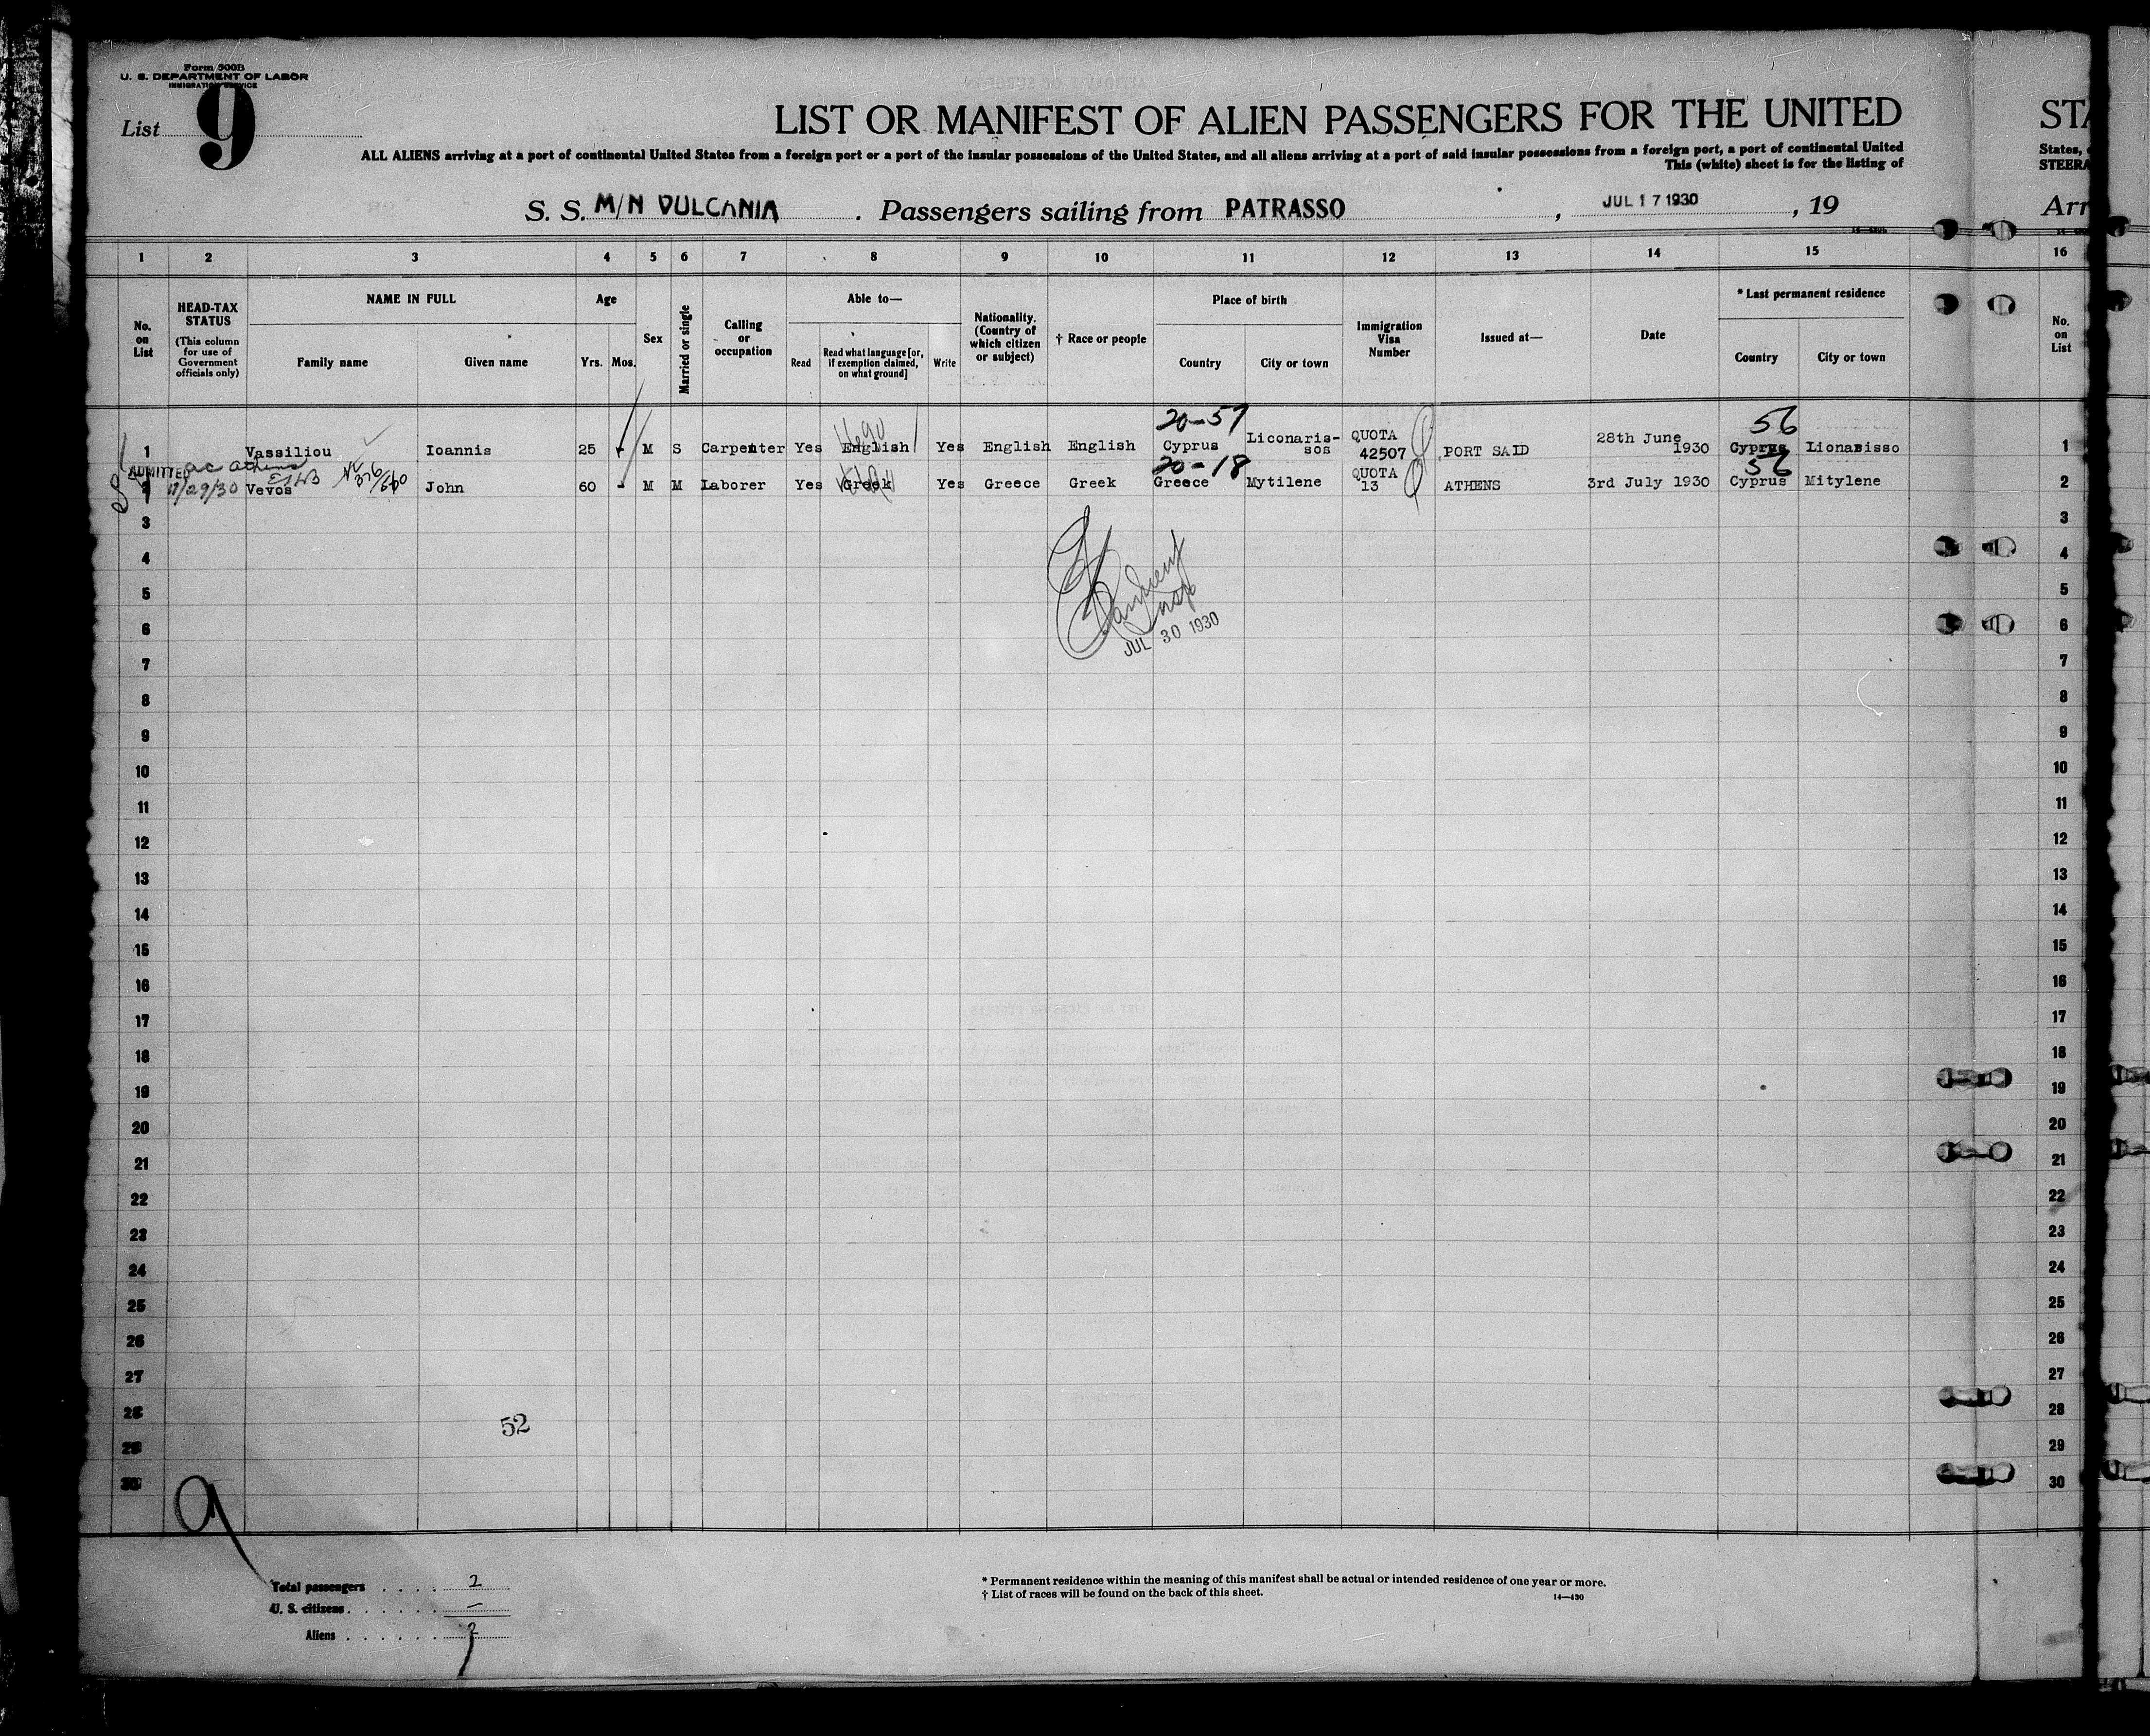 Form 500B
U. S. DEPARTMENT OF LABOR
IMMIGRATION SERVICE
List 9
LIST OR MANIFEST OF ALIEN PASSENGERS FOR THE UNITED
STA
ALL ALIENS arriving at a port of continental United States from a foreign port or a port of the insular possessions of the United States, and all aliens arriving at a port of said insular possessions from a foreign port, a port of continental United
States,
This (white) sheet is for the listing of
STEERA
S. S. M/N VULCANIA . Passengers sailing from PATRASSO , JUL 17 1930 , 19
Arr
1 2 3 4 5 6 7 8 9 10 11 12 13 14 15 16
No. on List
HEAD-TAX STATUS
(This column for use of Government officials only)
NAME IN FULL
Family name
Given name
Age
Yrs. Mos.
Sex
Married or single
Calling or occupation
Able to—
Read
Read what language [or, if exemption claimed, on what ground]
Write
Nationality. (Country of which citizen or subject)
† Race or people
Place of birth
Country
City or town
Immigration Visa Number
Issued at—
Date
* Last permanent residence
Country
City or town
No. on List
20-57 56
1 Vassiliou Ioannis 25 M S Carpenter Yes English Yes English English Cyprus Liconaris-sos QUOTA 42507 PORT SAID 28th June 1930 Cyprus Lionasisso 1
ADMITTED
20-18 56
2 Vevos John 60 - M M Laborer Yes Greek Yes Greece Greek Greece Mytilene QUOTA 13 ATHENS 3rd July 1930 Cyprus Mitylene 2
3 3
4 4
5 5
6 6
JUL 30 1930
7 7
8 8
9 9
10 10
11 11
12 12
13 13
14 14
15 15
16 16
17 17
18 18
19 19
20 20
21 21
22 22
23 23
24 24
25 25
26 26
27 27
28 28
52
29 29
30 30
9
Total passengers . . . . 2
U. S. citizens . . . . . . —
Aliens . . . . . . 2
* Permanent residence within the meaning of this manifest shall be actual or intended residence of one year or more.
† List of races will be found on the back of this sheet.
14—430